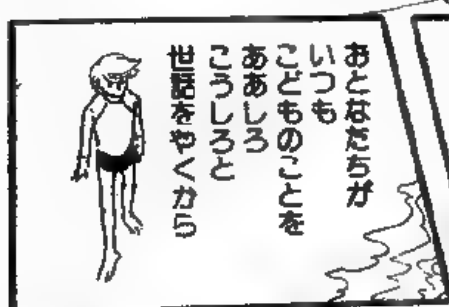 おとなたちが
いつも
こどものことを
ああしろ
こうしろと
世話をやくから